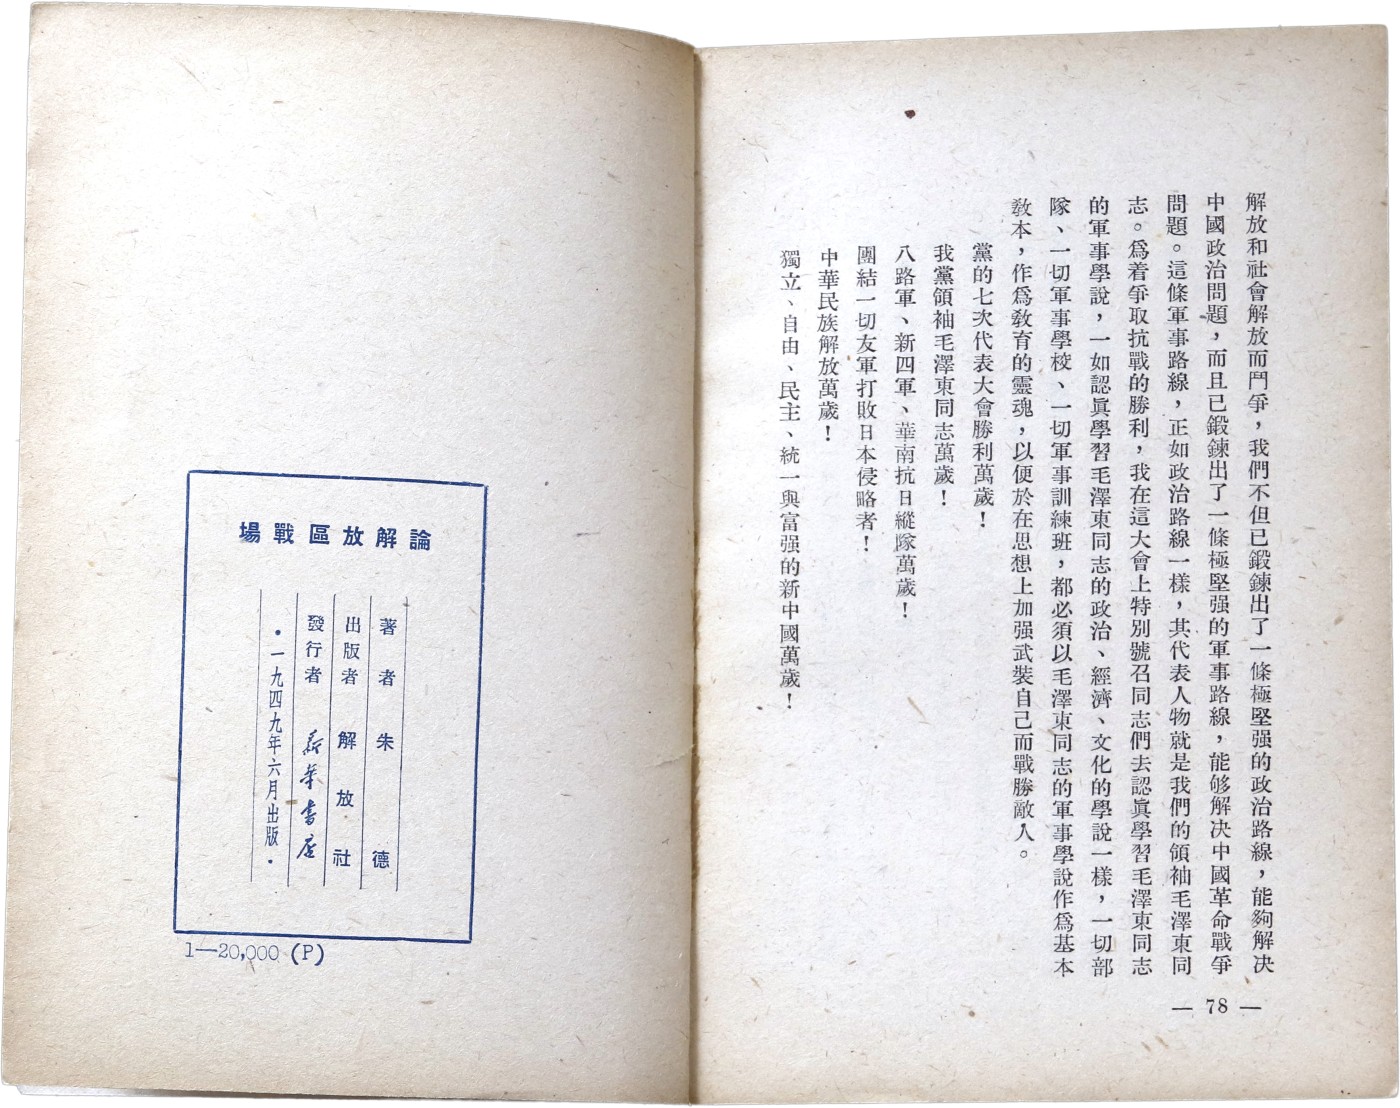 解放和社會解放而鬥爭，我們不但已鍛鍊出了一條極堅强的政治路線，能夠解决
中國政治問題，而且已鍛鍊出了一條極堅强的軍事路線，能够解决中國革命戰爭
問題。這條軍事路線，正如政治路線一樣，其代表人物就是我們的領袖毛澤東同
志。爲着爭取抗戰的勝利，我在這大會上特別號召同志們去認眞學習毛澤東同志
的軍事學說，一如認眞學習毛澤東同志的政治、經濟、文化的學說一樣，一切部
隊、一切軍事學校、一切軍事訓練班，都必須以毛澤東同志的軍事學說作爲基本
敎本，作爲敎育的靈魂，以便於在思想上加强武裝自己而戰勝敵人。
黨的七次代表大會勝利萬歲！
我黨領袖毛澤東同志萬歲！
八路軍、新四軍、華南抗日縱隊萬歲！
團結一切友軍打敗日本侵略者！
中華民族解放萬歲！
獨立、自由、民主、統一與富强的新中國萬歲！
— 78 —
論解放區戰場
著者 朱德
出版者 解放社
發行者 新華書店
·一九四九年六月出版·
1—20,000 (P)